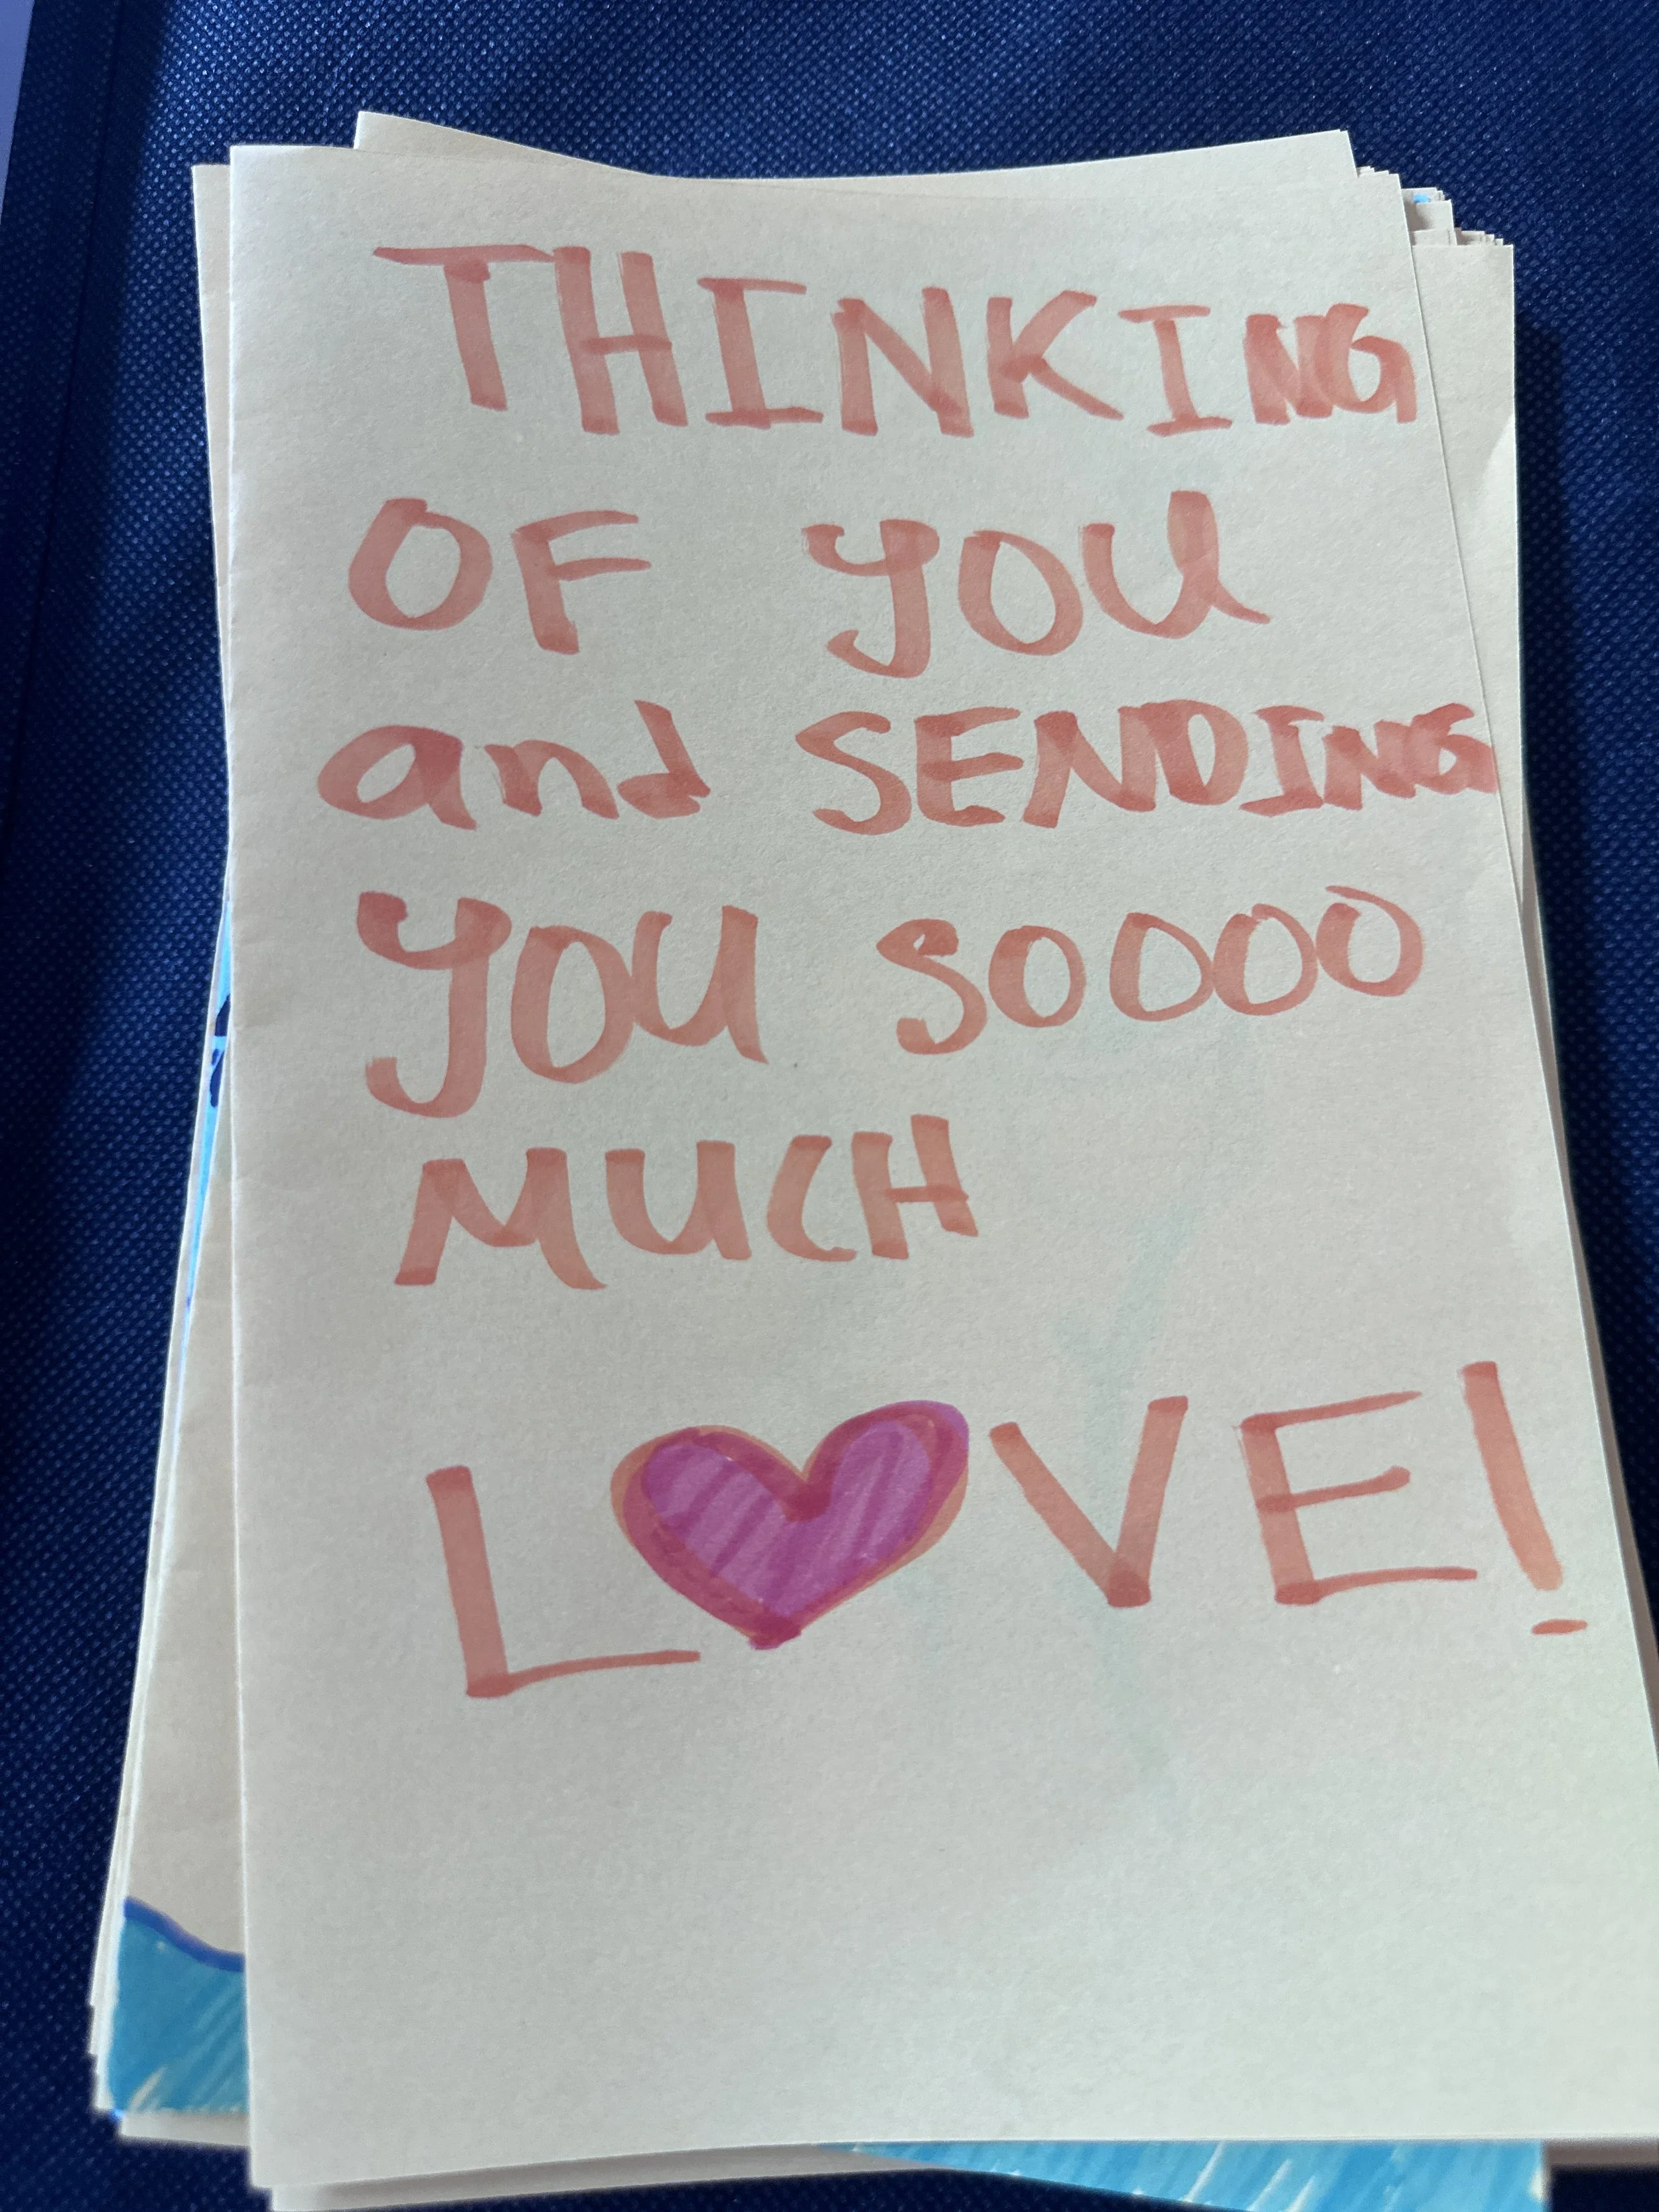 THINKING
OF YOU
and SENDING
YOU SOOOO
MUCH
LOVE!